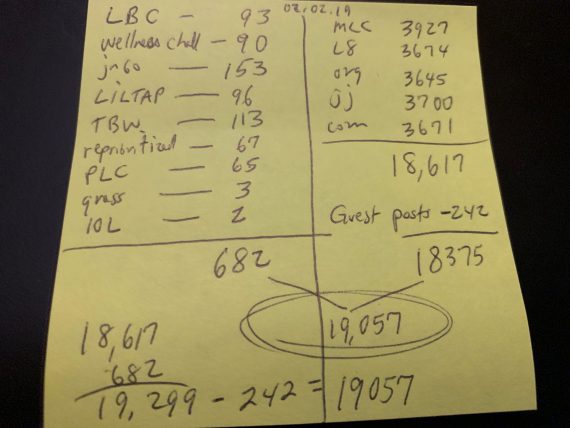 02.02.19
LBC - 93
wellness chall - 90
jn60 — 153
LiLTAP — 96
TBW — 113
67
PLC — 65
grass — 3
IOL — 2
682
MLC 3927
L8 3674
org 3645
jj 3700
com 3671
18,617
Guest posts -242
18375
19,057
18,617
682
19,299 - 242 = 19057